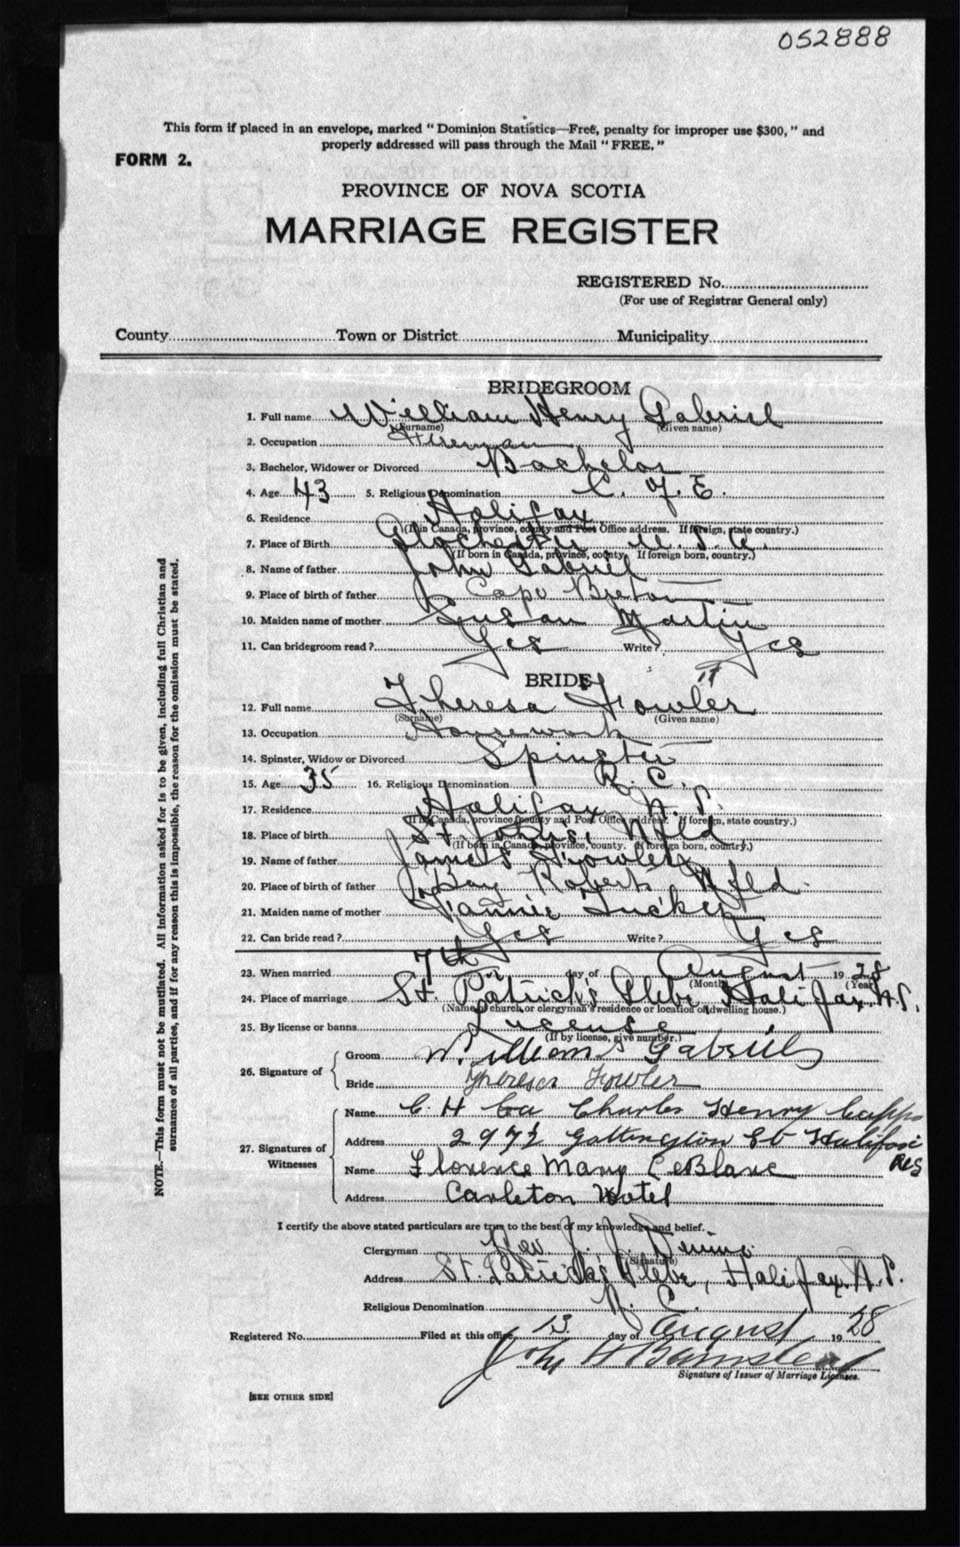 052888
This form if placed in an envelope, marked "Dominion Statistics—Free, penalty for improper use $300," and
properly addressed will pass through the Mail "FREE."
FORM 2.
PROVINCE OF NOVA SCOTIA
MARRIAGE REGISTER
REGISTERED No.
(For use of Registrar General only)
County Town or District Municipality
BRIDEGROOM
1. Full name William Henry Gabriel
(Surname) (Given name)
2. Occupation Fireman
3. Bachelor, Widower or Divorced Bachelor
4. Age 43 5. Religious Denomination C. of E.
6. Residence Halifax
(If in Canada, province, county and Post Office address. If foreign, state country.)
7. Place of Birth U. S. A.
(If born in Canada, province, county. If foreign born, country.)
8. Name of father John Gabriel
9. Place of birth of father Cape Breton
10. Maiden name of mother Susan Martin
11. Can bridegroom read? Yes Write? Yes
BRIDE
12. Full name Theresa Fowler
(Surname) (Given name)
13. Occupation Housework
14. Spinster, Widow or Divorced Spinster
15. Age 35 16. Religious Denomination R. C.
17. Residence Halifax N. S.
(If in Canada, province county and Post Office address. If foreign, state country.)
18. Place of birth St. John's, Nfld
(If born in Canada, province, county. If foreign born, country.)
19. Name of father James Fowler
20. Place of birth of father Bay Roberts Nfld.
21. Maiden name of mother Fannie Tucker
22. Can bride read? Yes Write? Yes
23. When married 7th day of August 1928
(Month) (Year)
24. Place of marriage St. Patrick's Glebe Halifax, N.S.
(Name church, or clergyman's residence or location of dwelling house.)
25. By license or banns License
(If by license, give number.)
26. Signature of
Groom William Gabriel
Bride Theresa Fowler
27. Signatures of Witnesses
Name C H Ca Charles Henry
Address Gottingen St Halifax
Name Florence Mary LeBlanc
Address Carleton Hotel
I certify the above stated particulars are true to the best of my knowledge and belief.
Clergyman Rev. J. J.
(Signature)
Address St. Patrick's Glebe, Halifax, N.S.
Religious Denomination R. C.
Registered No. Filed at this office 13 day of August 1928
John H Barnstead
Signature of Issuer of Marriage Licenses.
[SEE OTHER SIDE]
NOTE.—This form must not be mutilated. All information asked for is to be given, including full Christian and
surnames of all parties, and if for any reason this is impossible, the reason for the omission must be stated.